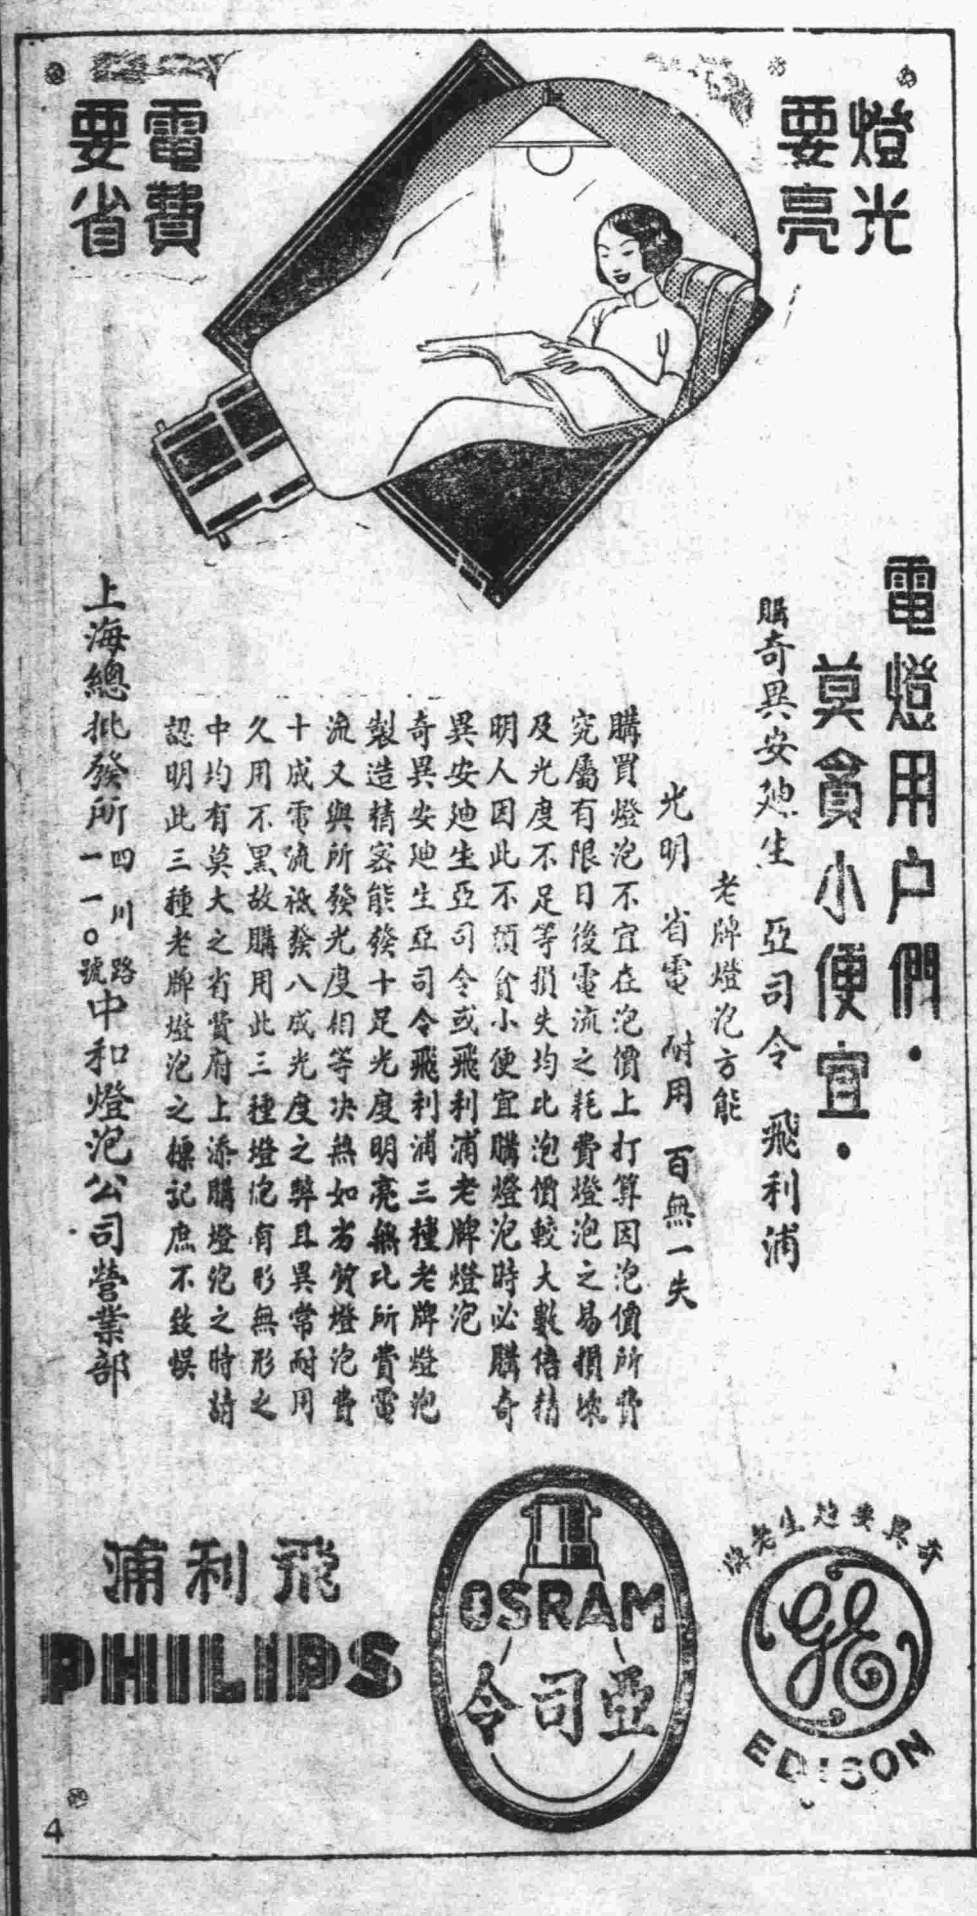 燈光
要亮
電費
要省
電燈用户們．
莫貪小便宜．
購奇異安廸生 亞司令 飛利浦
老牌燈泡方能
光明 省電 耐用 百無一失
購買燈泡不宜在泡價上打算因泡價所費
究屬有限日後電流之耗費燈泡之易損壞
及光度不足等損失均比泡價較大數倍精
明人因此不願貪小便宜購燈泡時必購奇
異安廸生亞司令或飛利浦老牌燈泡
奇異安廸生亞司令飛利浦三種老牌燈泡
製造精密能發十足光度明亮無比所費電
流又與所發光度相等决無如劣貨燈泡費
十成電流祗發八成光度之弊且異常耐用
久用不黑故購用此三種燈泡有形無形之
中均有莫大之省費府上添購燈泡之時請
認明此三種老牌燈泡之標記庶不致悞
上海總批發所 四川路
一一〇號 中和燈泡公司營業部
奇異安廸生老牌
GE
EDISON
OSRAM
亞司令
飛利浦
PHILIPS
4